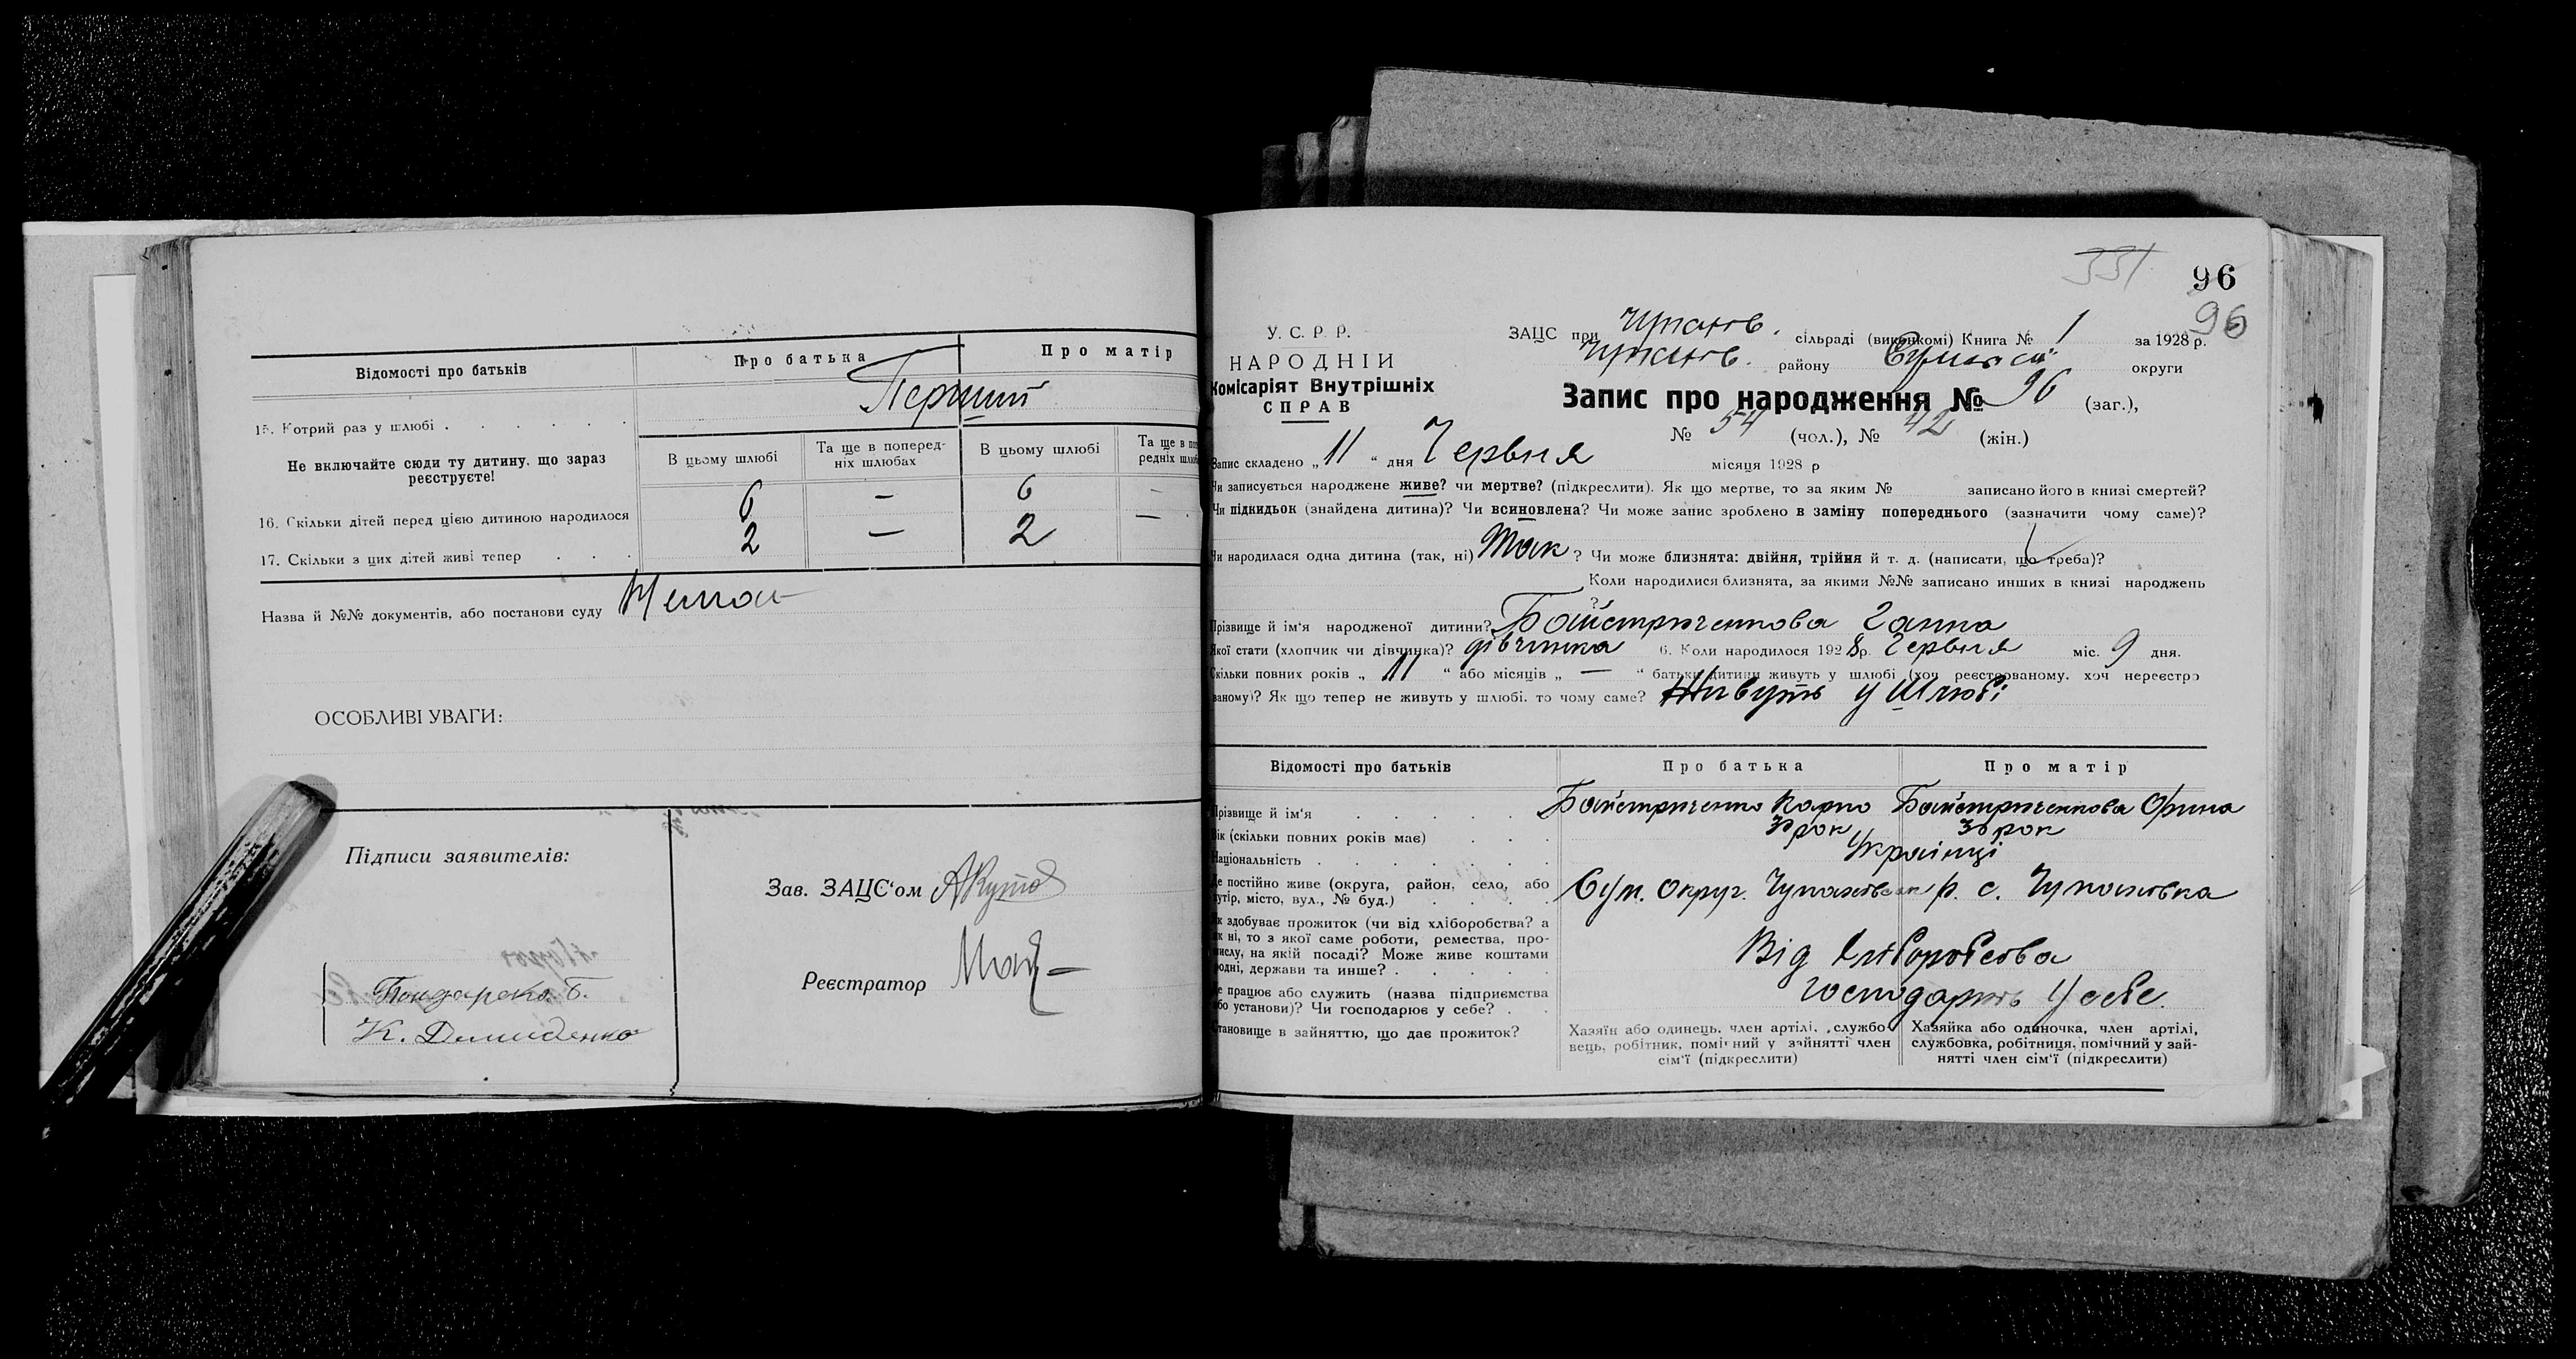 Відомості про батьків
Про батька
Про матір
Перший
15. Котрий раз у шлюбі
Не включайте сюди ту дитину, що зараз
реєструєте!
В цьому шлюбі
Та ще в поперед-
ніх шлюбах
В цьому шлюбі
Та ще в по
редніх шлю
16. Скільки дітей перед цією дитиною народилося 6 — 6 —
17. Скільки з цих дітей живі тепер 2 — 2 —
Назва й №№ документів, або постанови суду
ОСОБЛИВІ УВАГИ:
Підписи заявителів:
К. Демиденко
Зав. ЗАЦС'ом
Реєстратор
331
96
96
У. С. Р. Р.
НАРОДНІЙ
Комісаріят Внутрішніх
СПРАВ
ЗАЦС при Чупахів. сільраді (виконкомі) Книга № 1 за 1928 р.
Чупахів. району Сумськ округи
Запис про народження № 96 (заг.),
№ 54 (чол.), № 42 (жін.)
Запис складено „ 11 “ дня Червня місяця 1928 р
Чи записується народжене живе? чи мертве? (підкреслити). Як що мертве, то за яким № записано його в книзі смертей?
Чи підкидьок (знайдена дитина)? Чи всиновлена? Чи може запис зроблено в заміну попереднього (зазначити чому саме)?
Чи народилася одна дитина (так, ні) Так ? Чи може близнята: двійня, трійня й т. д. (написати, що треба)?
Коли народилися близнята, за якими №№ записано инших в книзі народжень
?
Прізвище й ім'я народженої дитини? Байстрюченкова Ганна
Якої стати (хлопчик чи дівчинка)? дівчинка 6. Коли народилося 1928 р. Червня міс. 9 дня.
Скільки повних років „ 11 “ або місяців „ — “ батьки дитини живуть у шлюбі (хоч реєстрованому, хоч нереєстро
ваному)? Як що тепер не живуть у шлюбі, то чому саме? Живуть у Шлюбі
Відомості про батьків
Про батька
Про матір
Прізвище й ім'я Байстрюченко Карпо Байстрюченкова Орина
Вік (скільки повних років має) рок рок
Національність Українці
Де постійно живе (округа, район, село, або
хутір, місто, вул., № буд.) Сум. округ. Чупахівськ р. с. Чупахівка
Як здобуває прожиток (чи від хліборобства? а
як ні, то з якої саме роботи, ремества, про-
мислу, на якій посаді? Може живе коштами
родні, держави та инше? Від хліборобства
Де працює або служить (назва підприємства
або установи)? Чи господарює у себе? господарить У себе
Становище в зайняттю, що дає прожиток?
Хазяїн або одинець, член артілі, службо
вець, робітник, помічний у зайнятті член
сім'ї (підкреслити)
Хазяйка або одиночка, член артілі,
службовка, робітниця, помічний у зай-
нятті член сім'ї (підкреслити)